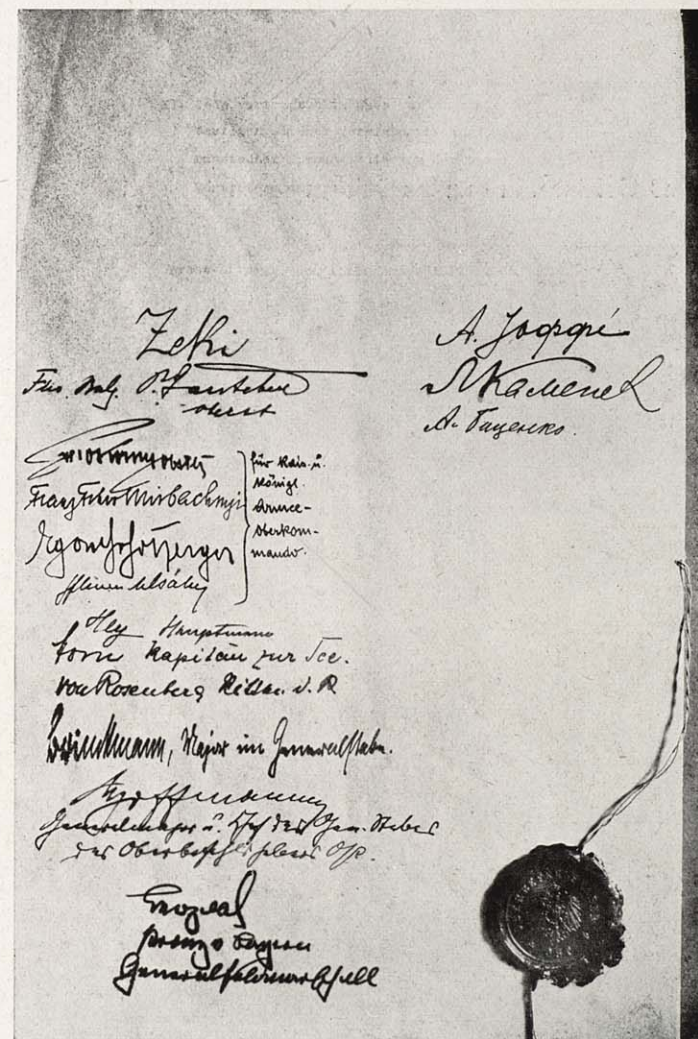 Zeki
Für Bulg. P. Gantchew
Oberst
Franz Frhr Mirbach mjr
für Kais. u.
Königl.
Armee-
Oberkom-
mando.
Hey Hauptmann
Horn Kapitän zur See.
von Rosenberg Rittm. d. R
Brinckmann, Major im Generalstabe.
Hoffmann
Generalmajor u. Chef des Gen. Stabes
des Oberbefehlshabers Ost.
Leopold
Prinz v Bayern
Generalfeldmarschall
А. Іоффе
Л Каменев
А. Биценко.